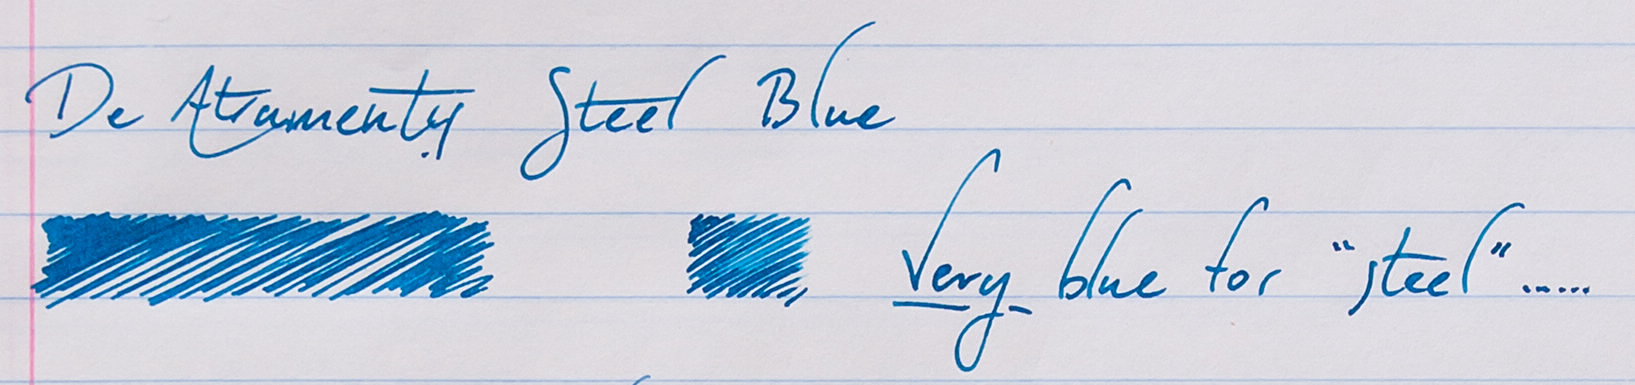 De Atramentis Steel Blue
Very blue for "steel".....